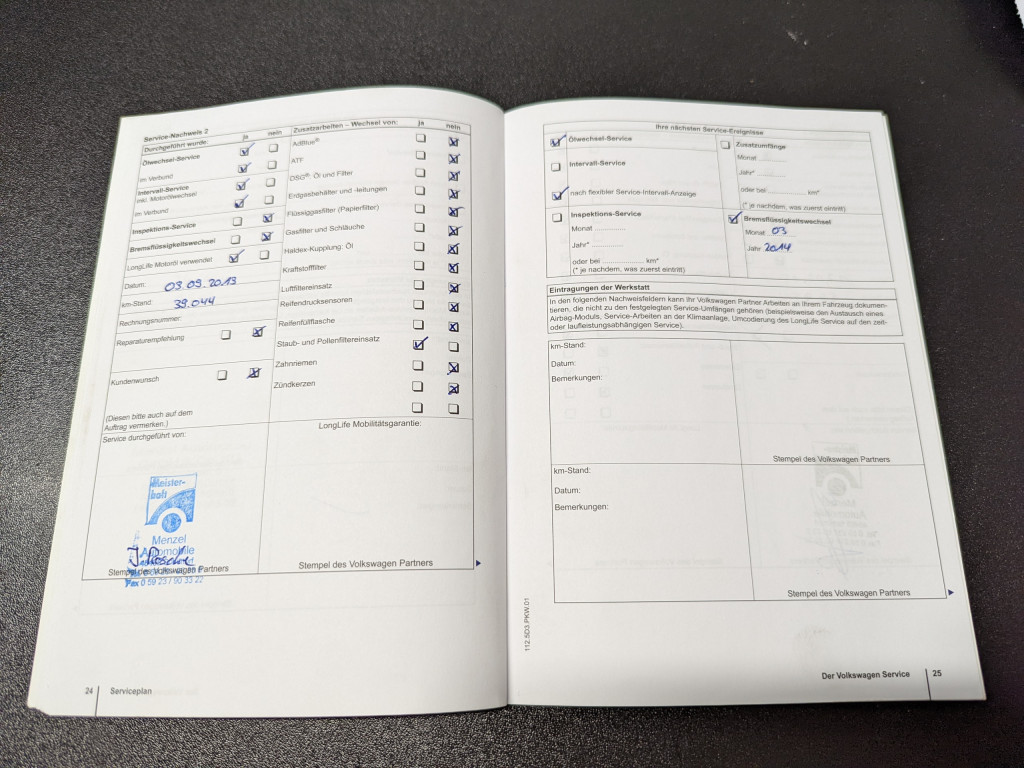 Service-Nachweis 2
Durchgeführt wurde: ja nein
Ölwechsel-Service
im Verbund
Intervall-Service
inkl. Motorölwechsel
im Verbund
Inspektions-Service
Bremsflüssigkeitswechsel
LongLife Motoröl verwendet
Datum: 03.09.2013
km-Stand: 39.044
Rechnungsnummer:
Reparaturempfehlung
Kundenwunsch
(Diesen bitte auch auf dem
Auftrag vermerken.)
Service durchgeführt von:
Meister-
haft
Menzel
Automobile
Fax 0 59 23 / 90 33 22
Stempel des Volkswagen Partners
Zusatzarbeiten – Wechsel von: ja nein
AdBlue®
ATF
DSG®: Öl und Filter
Erdgasbehälter und -leitungen
Flüssiggasfilter (Papierfilter)
Gasfilter und Schläuche
Haldex-Kupplung: Öl
Kraftstofffilter
Luftfiltereinsatz
Reifendrucksensoren
Reifenfüllflasche
Staub- und Pollenfiltereinsatz
Zahnriemen
Zündkerzen
LongLife Mobilitätsgarantie:
Stempel des Volkswagen Partners
24 Serviceplan
Ihre nächsten Service-Ereignisse
Ölwechsel-Service
Intervall-Service
nach flexibler Service-Intervall-Anzeige
Inspektions-Service
Monat ..............
Jahr* ..............
oder bei .................. km*
(* je nachdem, was zuerst eintritt)
Zusatzumfänge
Monat ............
Jahr* ............
oder bei .................. km*
(* je nachdem, was zuerst eintritt)
Bremsflüssigkeitswechsel
Monat 03
Jahr 2014
Eintragungen der Werkstatt
In den folgenden Nachweisfeldern kann Ihr Volkswagen Partner Arbeiten an Ihrem Fahrzeug dokumen-
tieren, die nicht zu den festgelegten Service-Umfängen gehören (beispielsweise den Austausch eines
Airbag-Moduls, Service-Arbeiten an der Klimaanlage, Umcodierung des LongLife Service auf den zeit-
oder laufleistungsabhängigen Service).
km-Stand:
Datum:
Bemerkungen:
Stempel des Volkswagen Partners
km-Stand:
Datum:
Bemerkungen:
Stempel des Volkswagen Partners
112.5D3.PKW.01
Der Volkswagen Service 25